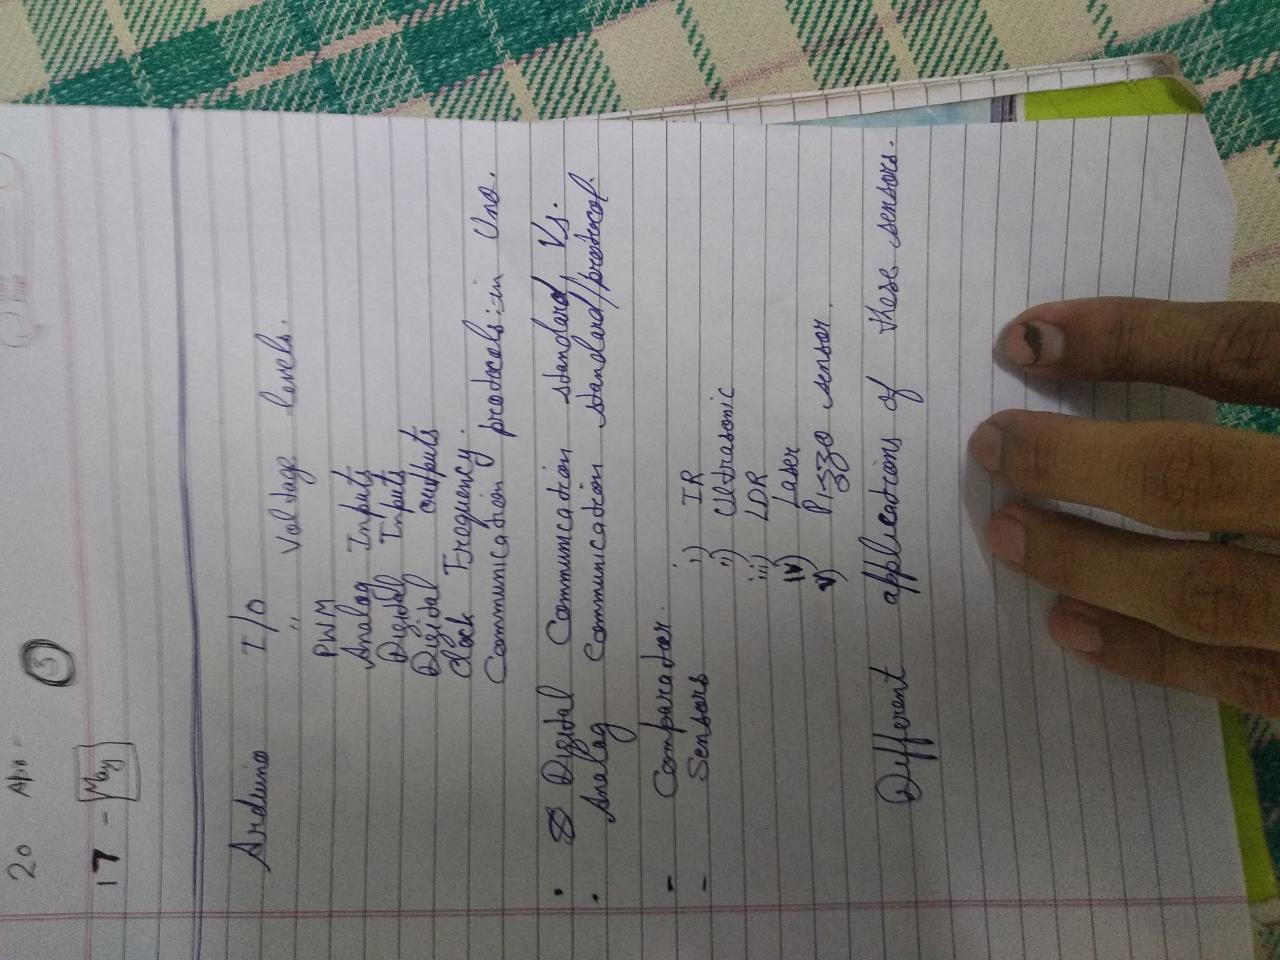 20 Apr -
17 - May 3
Arduino I/O
" Voltage levels.
PWM
Analog Inputs
Digital Inputs
Digital outputs
clock Frequency.
Communication protocols in Uno.
Digital Communication standard Vs.
Analog Communication standard/protocol.
- Comparator.
- Sensors i) IR
ii) Ultrasonic
iii) LDR
iv) Laser
v) Pizzo sensor.
Different applications of these sensors.